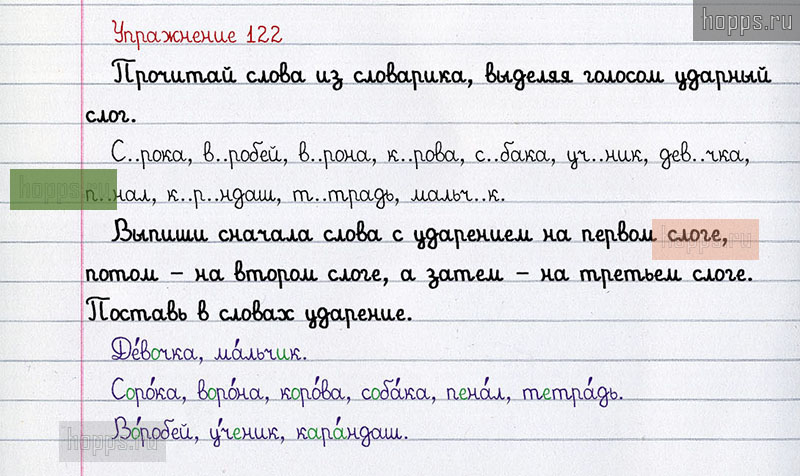 hopps.ru
Упражнение 122
Прочитай слова из словарика, выделяя голосом ударный
слог.
С..рока, в..робей, в..рона, к..рова, с..бака, уч..ник, дев..чка,
п..нал, к..р..ндаш, т..традь, мальч..к.
Выпиши сначала слова с ударением на первом слоге,
потом – на втором слоге, а затем – на третьем слоге.
Поставь в словах ударение.
Де́вочка, ма́льчик.
Соро́ка, воро́на, коро́ва, соба́ка, пена́л, тетра́дь.
Во́робей, у́ченик, кара́ндаш.
hopps.ru